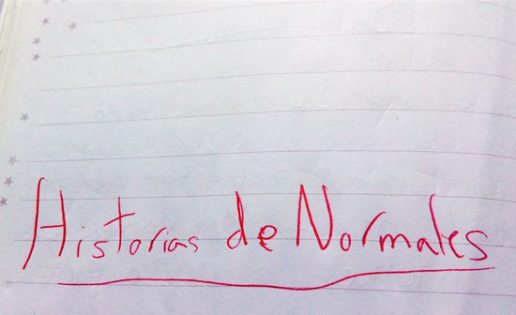 Historias de Normales